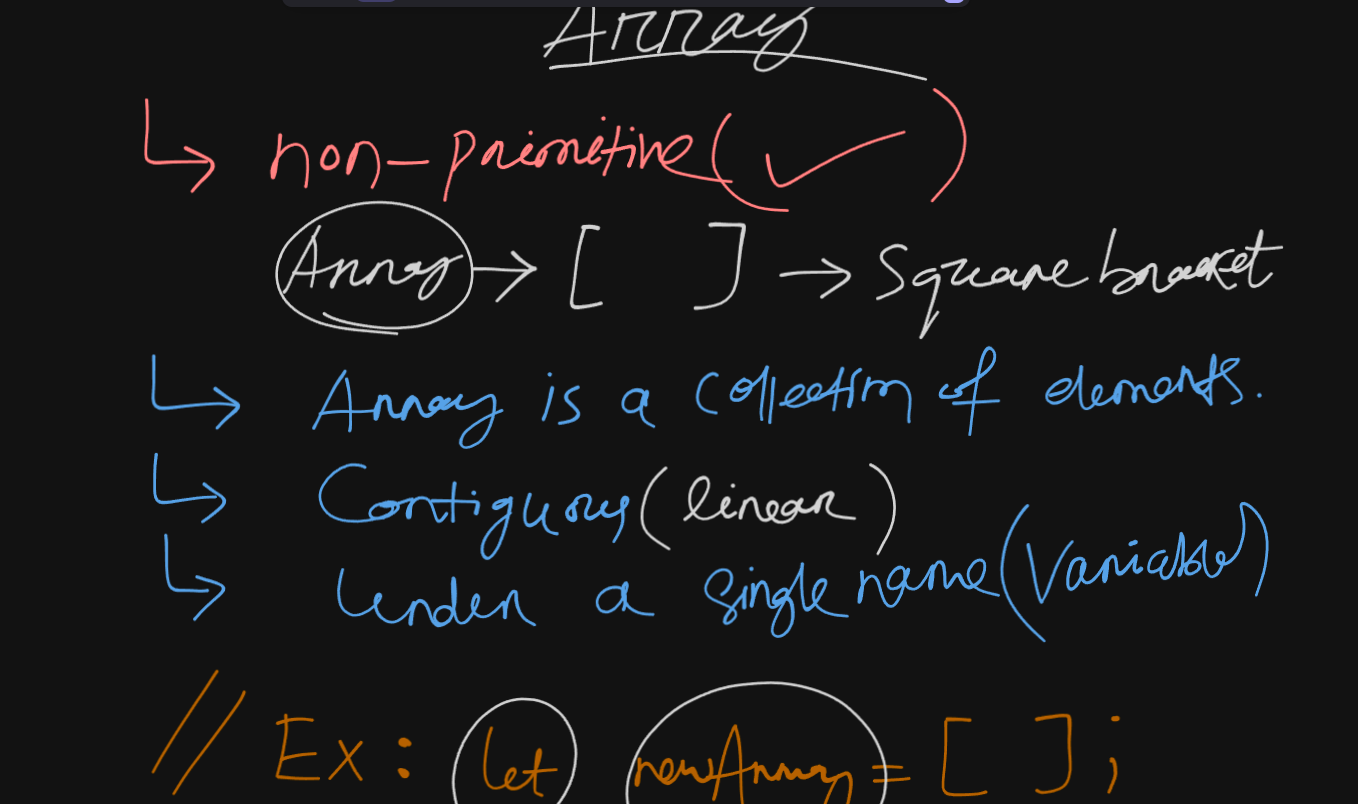 Array
↳ non-primitive (✓)
Array → [ ] → Square bracket
↳ Array is a collection of elements.
↳ Contiguous (linear)
↳ Under a single name (Variable)
// Ex: let newArray = [ ];